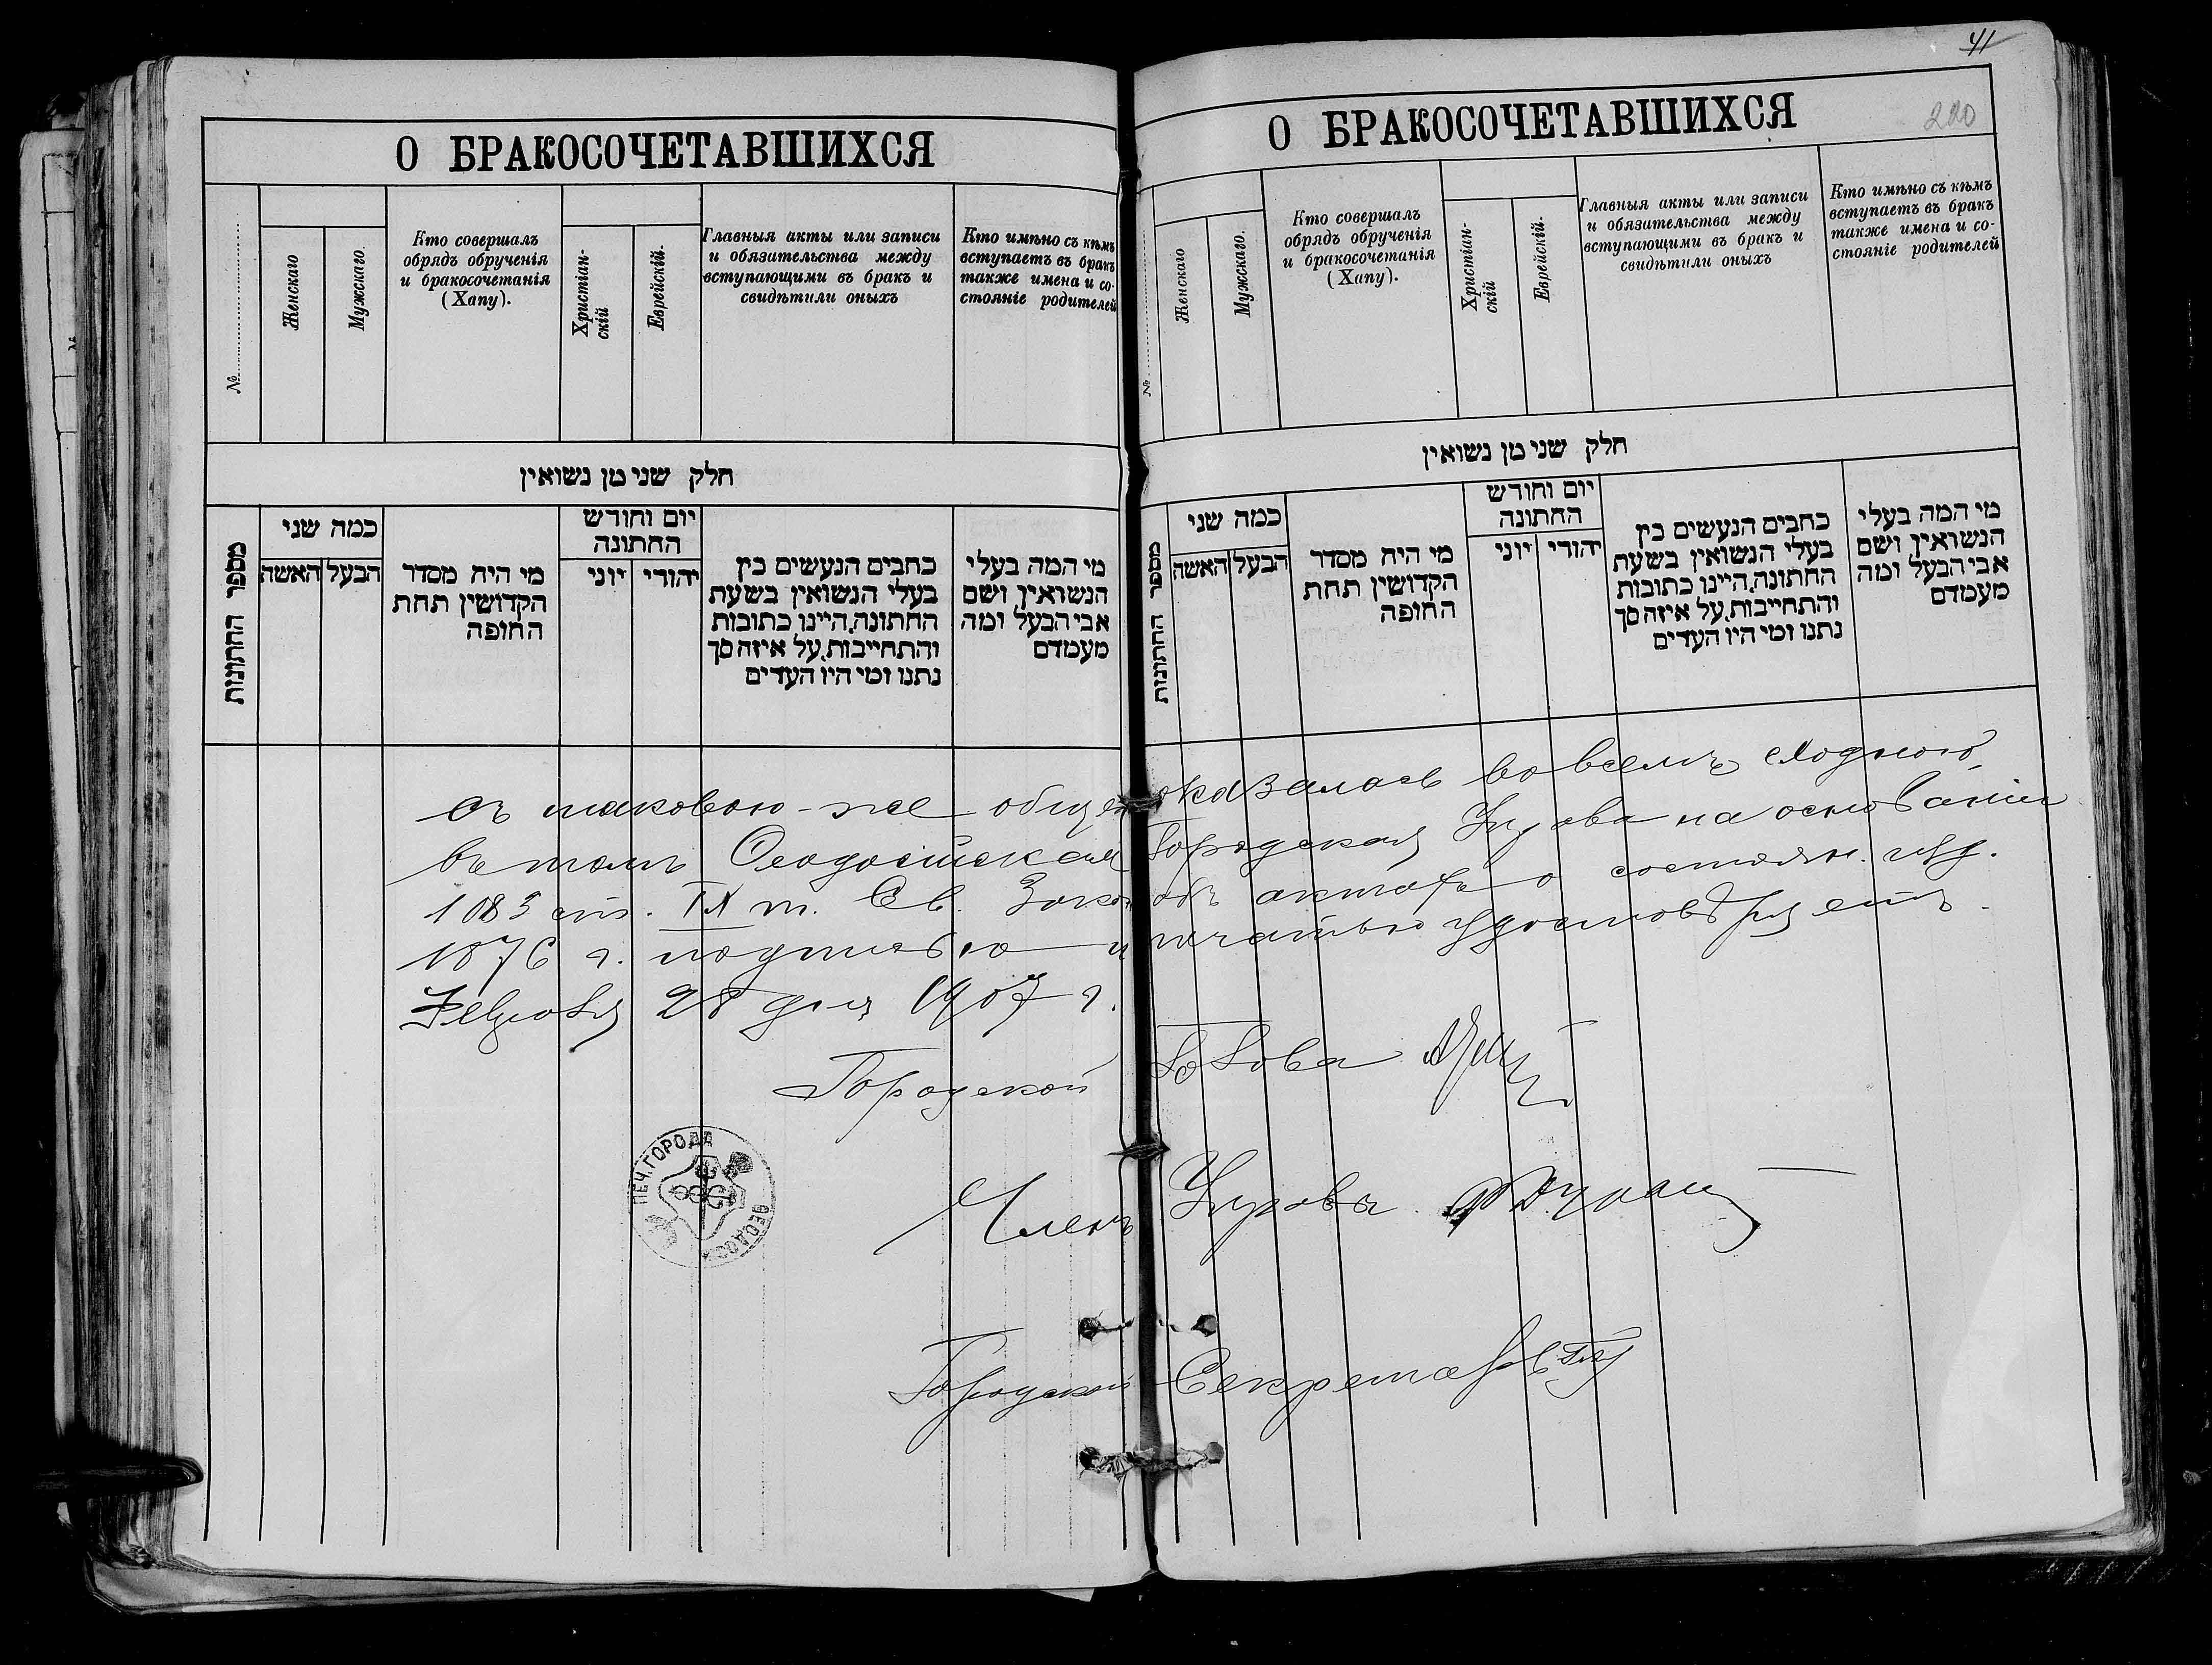 О БРАКОСОЧЕТАВШИХСЯ
№
Женскаго
Мужскаго
Кто совершалъ
обрядъ обрученія
и бракосочетанія
(Хапу).
Христіан-
скій
Еврейскій.
Главныя акты или записи
и обязательства между
вступающими въ бракъ и
свидѣтили оныхъ
Кто имѣно съ кѣмъ
вступаетъ въ бракъ
также имена и со-
стояніе родителей
חלק שני מן נשואין
מספר החתונות
כמה שני
האשה
הבעל
מי היה מסדר
הקדושין תחת
החופה
יום וחודש
החתונה
יוני
יהודי
כתבים הנעשים בין
בעלי הנשואין בשעת
החתונה, היינו כתובות
והתחייבות, על איזה סך
נתנו ומי היו העדים
מי המה בעלי
הנשואין ושם
אבי הבעל ומה
מעמדם
41
220
О БРАКОСОЧЕТАВШИХСЯ
№
Женскаго
Мужскаго.
Кто совершалъ
обрядъ обрученія
и бракосочетанія
(Хапу).
Христіан-
скій
Еврейскій.
Главныя акты или записи
и обязательства между
вступающими въ бракъ и
свидѣтили оныхъ
Кто имѣно съ кѣмъ
вступаетъ въ бракъ
также имена и со-
стояніе родителей
חלק שני מן נשואין
מספר החתונות
כמה שני
האשה
הבעל
מי היה מסדר
הקדושין תחת
החופה
יום וחודש
החתונה
יוני
יהודי
כתבים הנעשים בין
בעלי הנשואין בשעת
החתונה, היינו כתובות
והתחייבות, על איזה סך
נתנו ומי היו העדים
מי המה בעלי
הנשואין ושם
אבי הבעל ומה
מעמדם
съ таковою-же общею оказалась во всемъ сходною,
въ томъ Ѳеодосійская Городская Управа на основаніи
1083 ст. IX т. Св. Закон объ актахъ о состоян. изд.
1876 г. подписью и печатью удостовѣряетъ.
Февраля 28 дня 1907 г.
Городской Голова
Членъ Управы
Городской Секретарь
ПЕЧ. ГОРОДА ѲЕОДОСІ